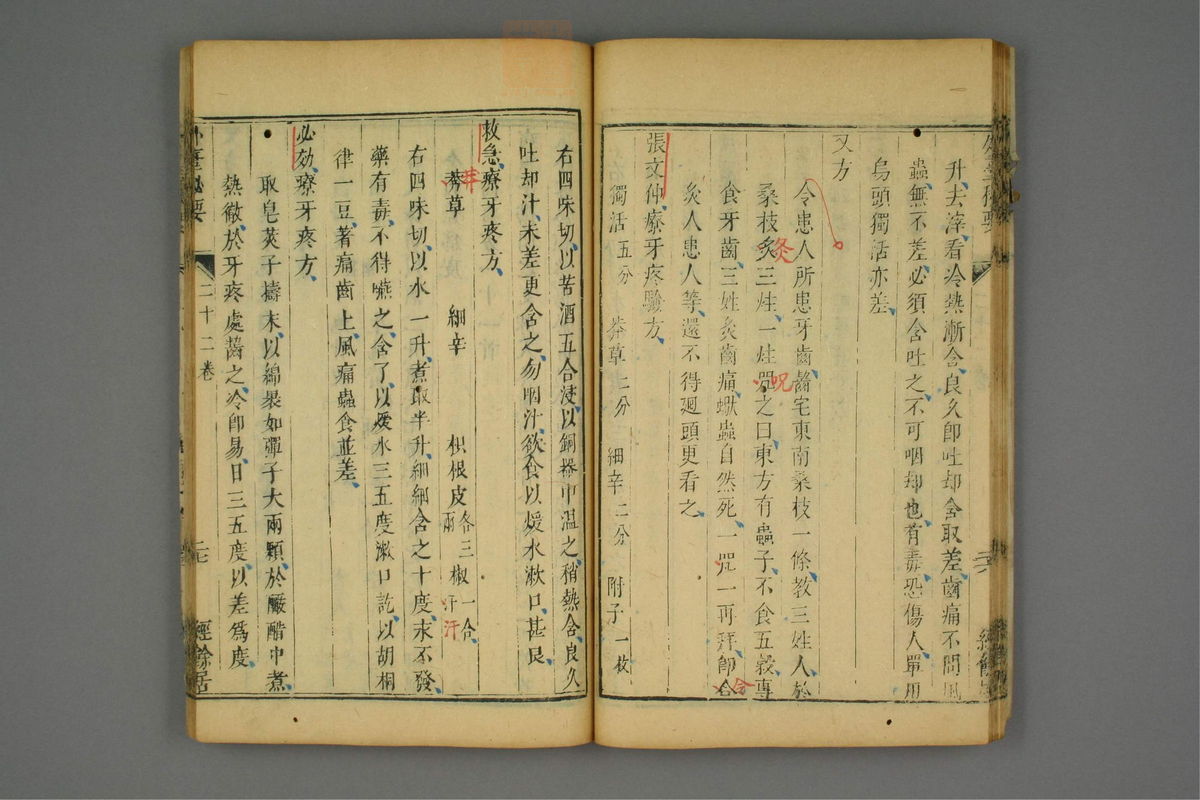 升去滓看冷熱漸含良久卽吐却含取差齒痛不問風
蟲無不差必須含吐之不可咽却也有毒恐傷人單用
烏頭獨活亦差
又方
令患人所患牙齒齧宅東南桑枝一條教三姓人於
桑枝炙三炷一炷咒之曰東方有蟲子不食五穀專
灸
呪
食牙齒三姓灸齒痛蠍蟲自然死一咒一再拜卽含
合
灸人患人等還不得迴頭更看之
張文仲療牙疼驗方
獨活五分 莽草二分 細辛二分 附子一枚
右四味切以苦酒五合浸以銅器中溫之稍熱含良久
吐却汁未差更含之勿咽汁欲食以煖水漱口甚良
救急療牙疼方
莽草 細辛 枳根皮各三兩 椒一合汗
莽
汗
右四味切以水一升煮取半升細細含之十度末不發
藥有毒不得嚥之含了以煖水三五度漱口訖以胡桐
律一豆著痛齒上風痛蟲食並差
必効療牙疼方
取皂莢子擣末以綿裹如彈子大兩顆於釅醋中煮
熱徹於牙疼處齧之冷卽易日三五度以差爲度
外臺秘要 二十二卷 二七 經餘居